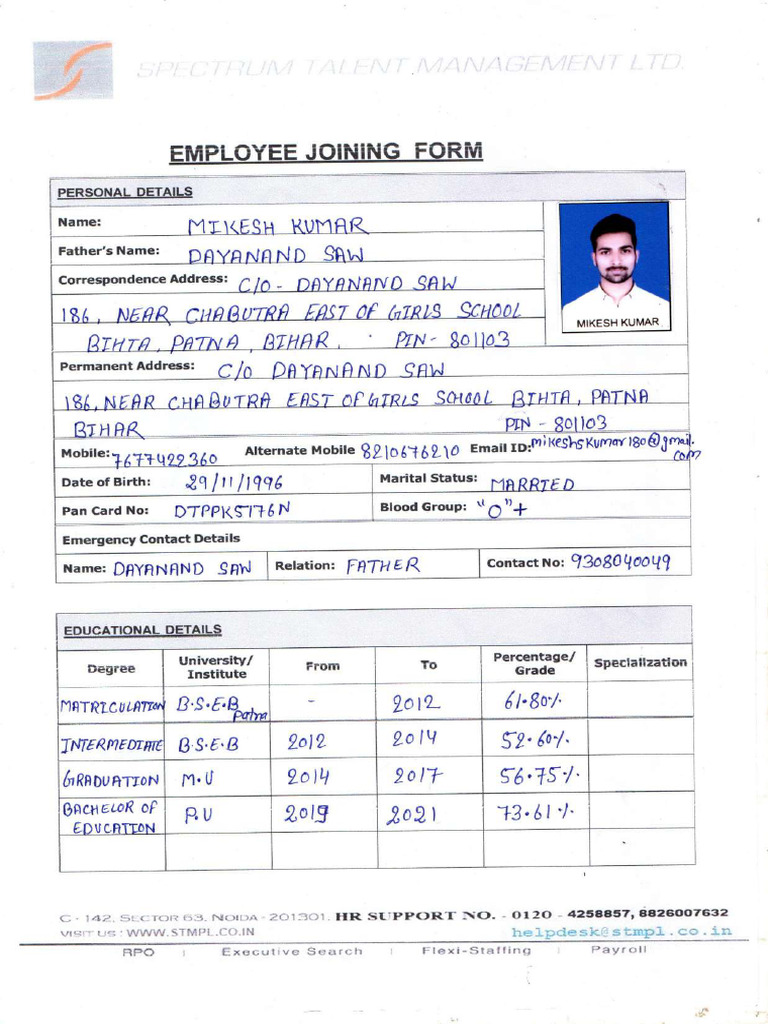 SPECTRUM TALENT MANAGEMENT LTD.
EMPLOYEE JOINING FORM
PERSONAL DETAILS
Name: MIKESH KUMAR
Father's Name: DAYANAND SAW
Correspondence Address: C/O- DAYANAND SAW
186, NEAR CHABUTRA EAST OF GIRLS SCHOOL
BIHTA, PATNA, BIHAR. PIN- 801103
MIKESH KUMAR
Permanent Address: C/O DAYANAND SAW
186, NEAR CHABUTRA EAST OF GIRLS SCHOOL BIHTA, PATNA
BIHAR PIN - 801103
Mobile: 7677422360 Alternate Mobile 8210676210 Email ID: mikeshskumar180@gmail.com
Date of Birth: 29/11/1996 Marital Status: MARRIED
Pan Card No: DTPPK5176N Blood Group: "O"+
Emergency Contact Details
Name: DAYANAND SAW Relation: FATHER Contact No: 9308040049
EDUCATIONAL DETAILS
Degree University/ Institute From To Percentage/ Grade Specialization
MATRICULATION B.S.E.B Patna - 2012 61.80%
INTERMEDIATE B.S.E.B 2012 2014 52.60%
GRADUATION M.U 2014 2017 56.75%
BACHELOR OF EDUCATION P.U 2019 2021 73.61%
C - 142, SECTOR 63, NOIDA - 201301. HR SUPPORT NO. - 0120 - 4258857, 8826007632
VISIT US : WWW.STMPL.CO.IN helpdesk@stmpl.co.in
RPO | Executive Search | Flexi-Staffing | Payroll